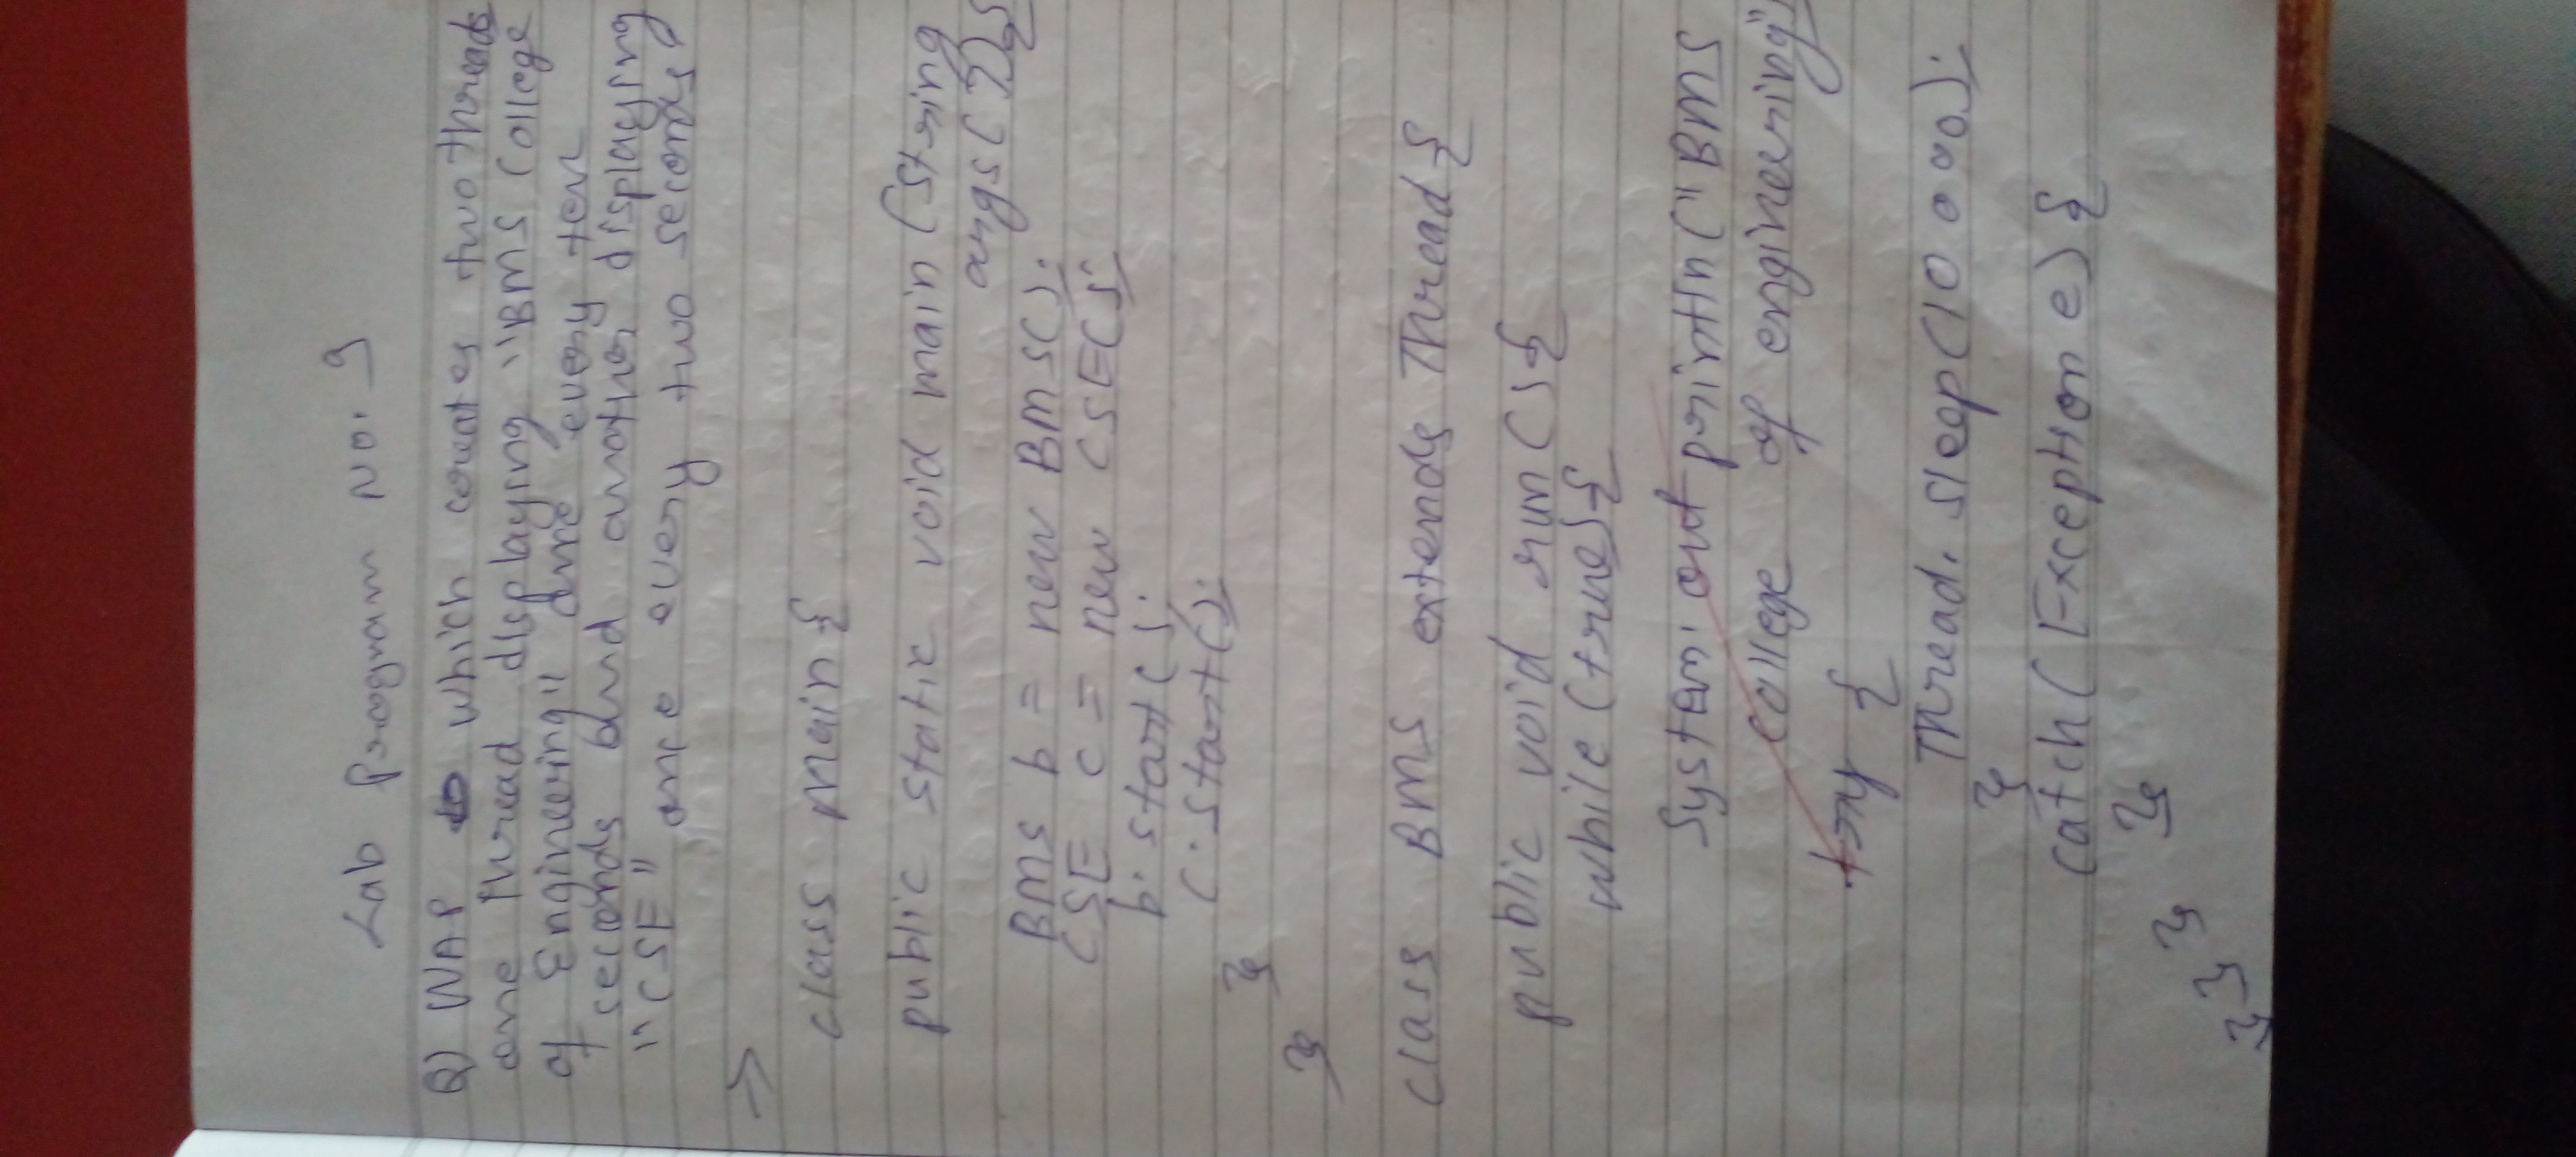 Lab Program No. 9
Q) WAP which creates two threads
one thread displaying "BMS College
of Engineering" once every ten
seconds and another displaying
"CSE" once every two seconds.
=>
class main {
public static void main (String
args[]){
BMS b = new BMS();
CSE c = new CSE();
b. start();
c. start();
}
}
class BMS extends Thread {
public void run () {
while (true) {
System. out println (" BMS
college of engineering")
try {
Thread. sleep (10 000);
}
catch ( Exception e) {
}
}
}
}